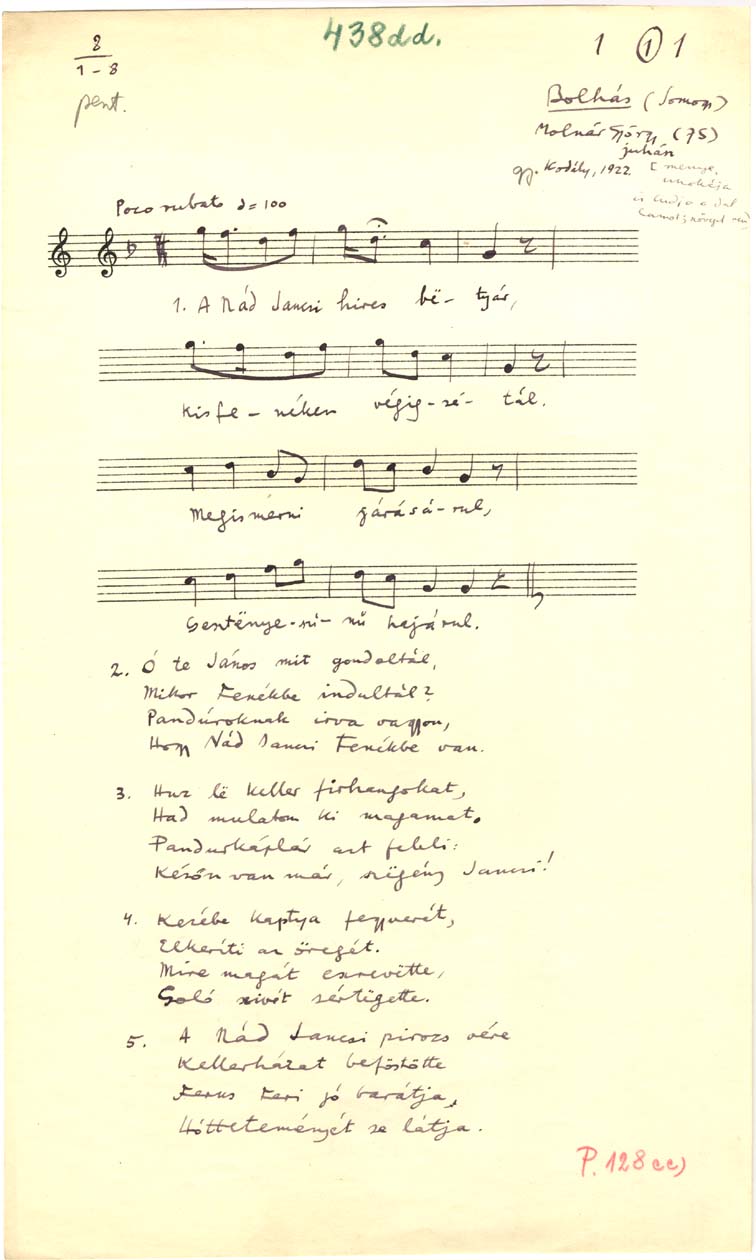 8
1-8
pent.
438dd.
1 1 1
Bolhás (Somogy)
Molnár György (75)
juhász
gy. Kodály, 1922.
[ menye,
unokája
is tudja a dal
Poco rubato = 100
1. A Nád Jancsi hires bë-tyár,
Kisfe-néken végig-sé-tál.
Megismérni járásá-rul,
Gesztënye-szi-nű hajárul.
2. Ó te János mit gondoltál,
Mikor Fenékbe indultál?
Pandúroknak irva vagyon,
Hogy Nád Jancsi Fenékbe van.
3. Huz lë Keller firhangokat,
Had mulatom ki magamat.
Pandurkáplár azt feleli:
Későn van már, szëgény Jancsi!
4. Kezébe kaptya fegyverét,
Elkeríti az öregét.
Mire magát eszrevëtte,
Goló szivét sértëgette.
5. A Nád Jancsi pirozs vére
Kellerházat beföstötte
Ferus Feri jó barátja,
Hóttteteményét se látja.
P. 128cc)